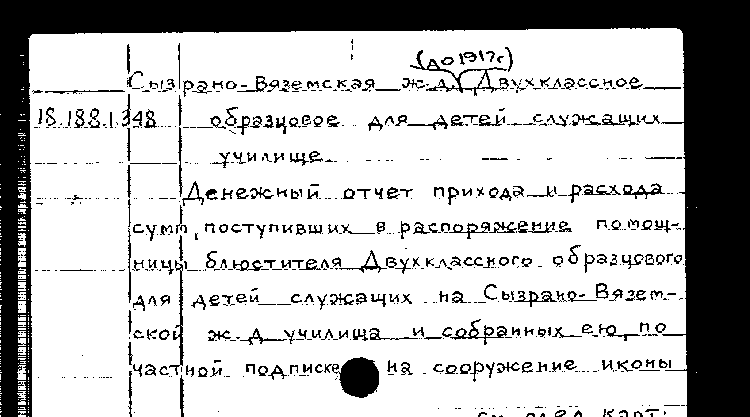 (до 1917г)
Сызрано-Вяземская ж.д. Двухклассное
18.188.1.348 образцовое для детей служащих
училище
Денежный отчет прихода и расхода
сумм, поступивших в распоряжение помощ-
ницы блюстителя Двухклассного образцового
для детей служащих на Сызрано-Вязем-
ской ж.д училища и собранных ею, по
частной подписке на сооружение иконы
см. след. карт.